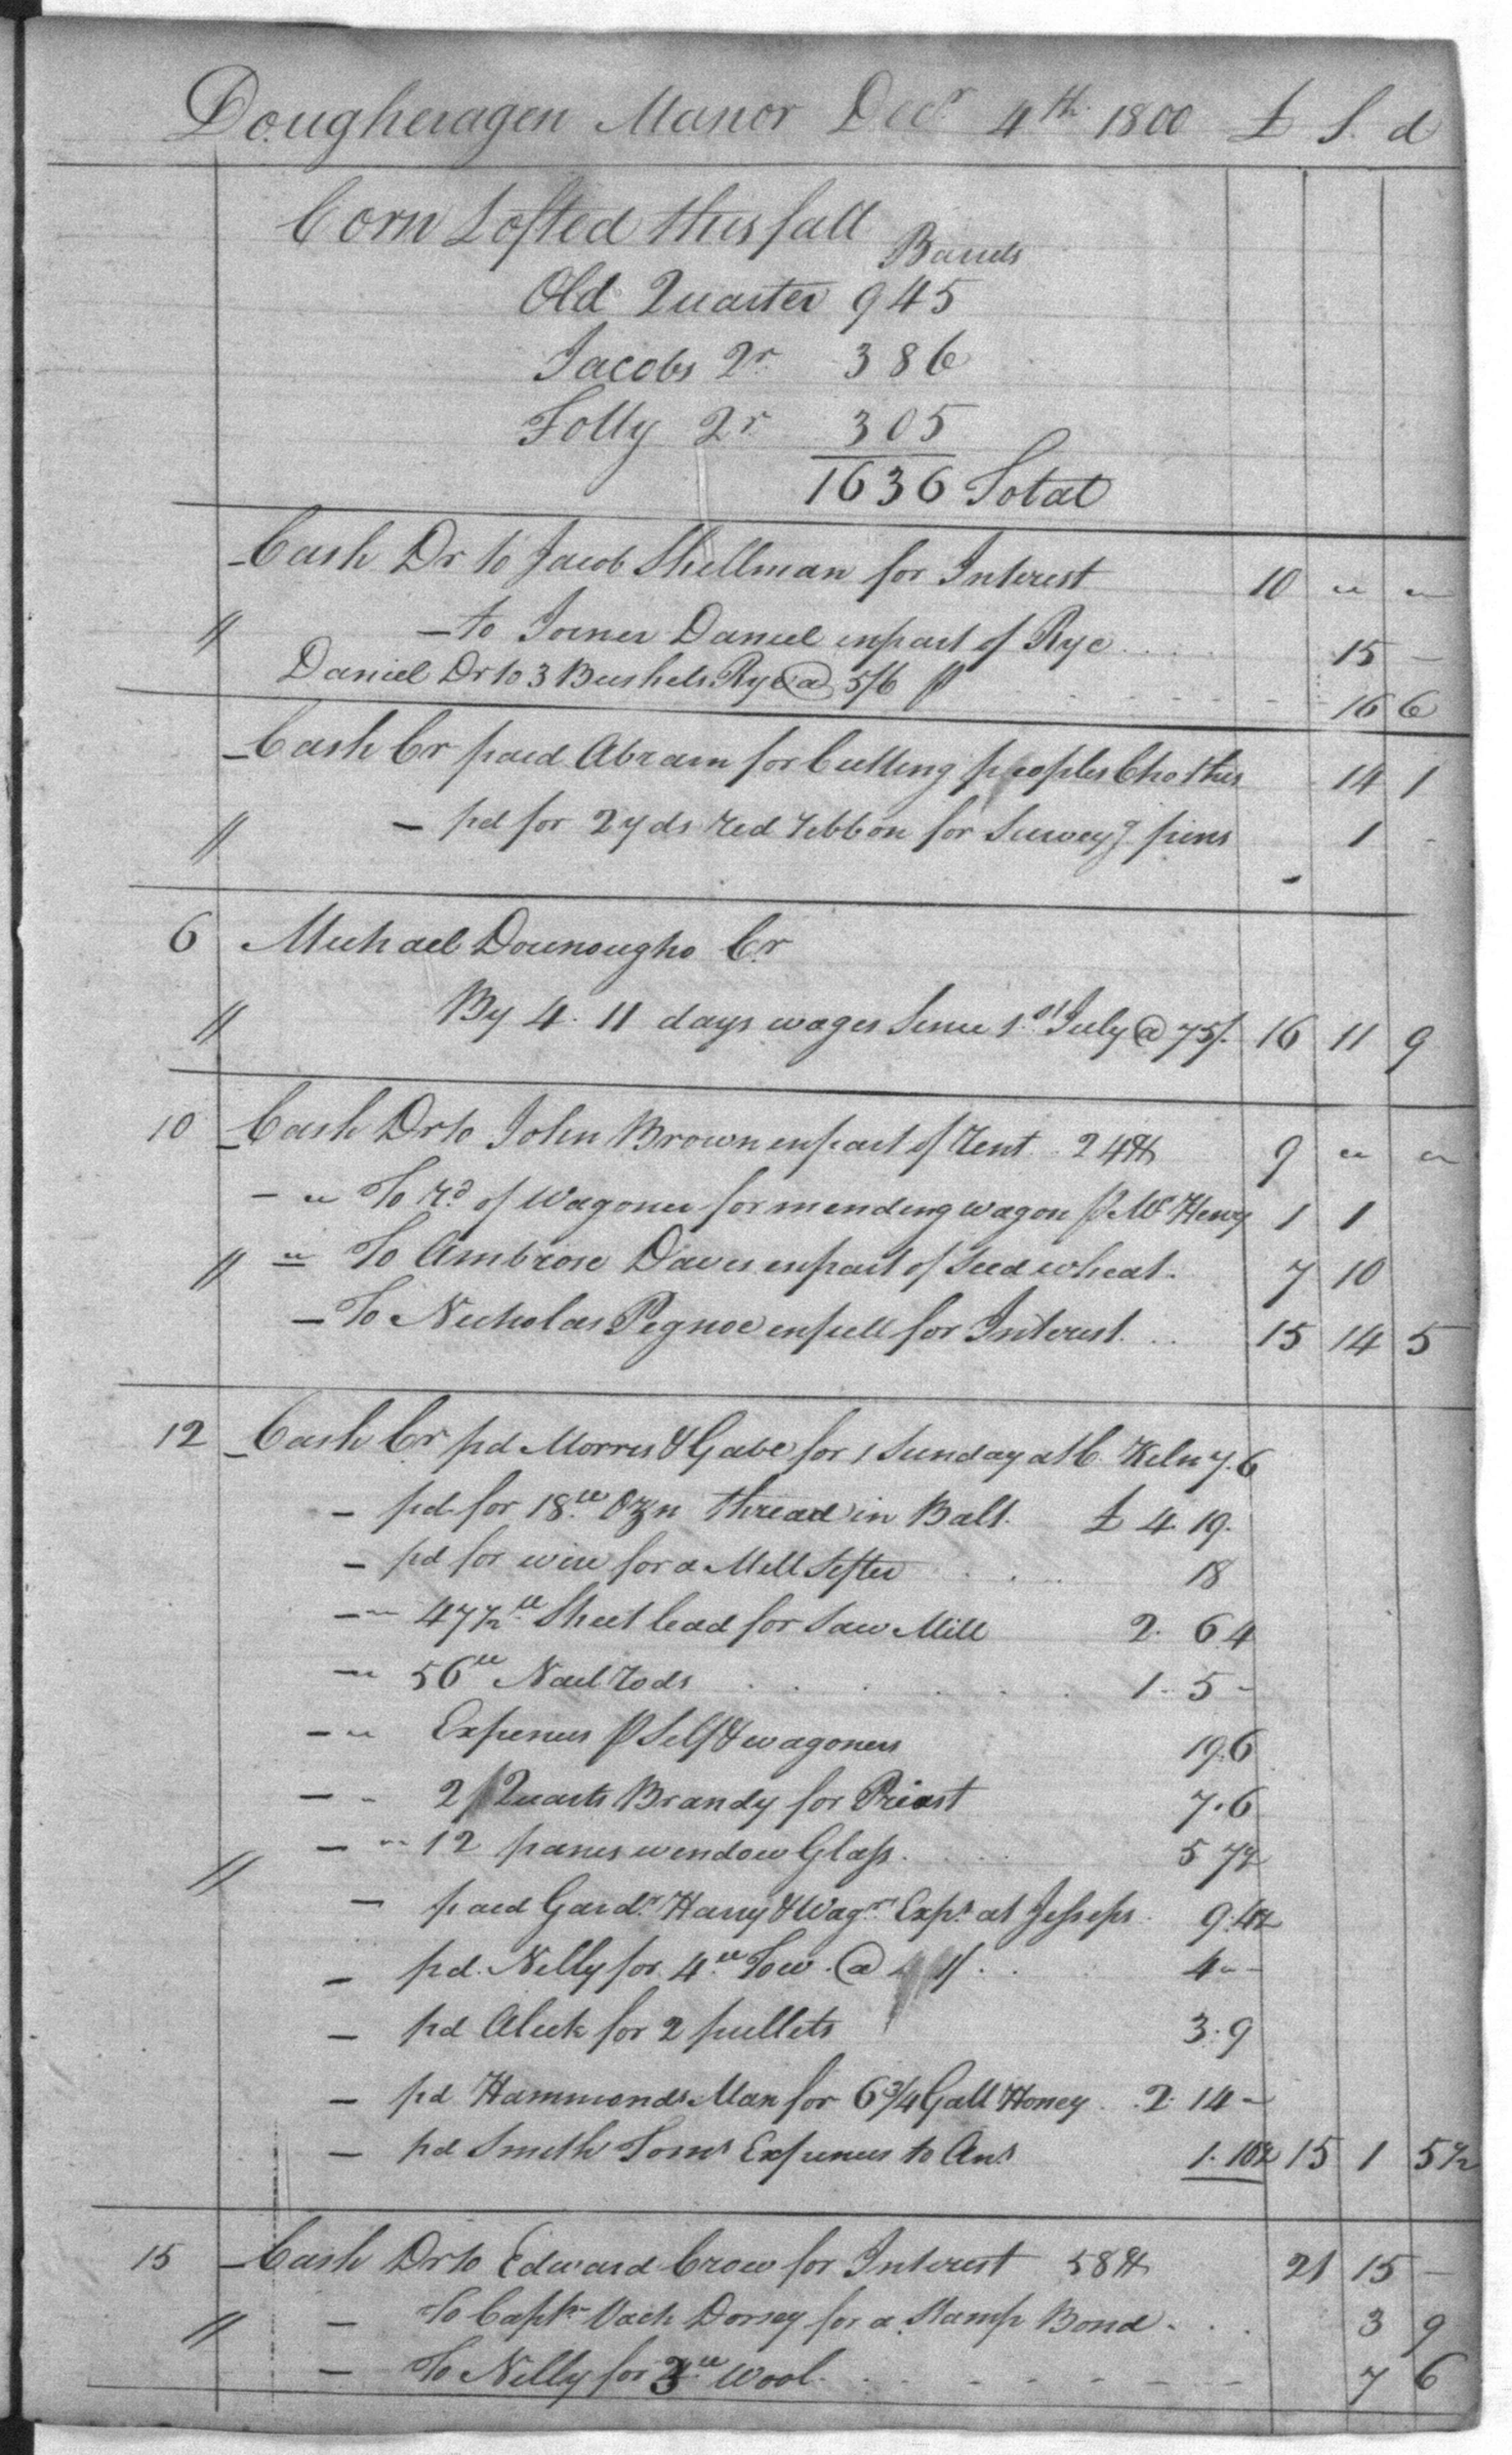 Dougheragen Manor Decr 4th 1800 £ S. d
Corn Lofted this fall
Barrels
Old Quarter 945
Jacobs Qr 386
Folly Qr 305
1636 Total
Cash Dr to Jacob Shellman for Interest 10 " "
// — to Joiner Daniel in part of Rye .... 15 —
Daniel Dr to 3 Bushels Rye @ 5/6 p 16 6
Cash Cr paid Abram for Cutting peoples Clothes 14 1
// — pd for 2 yds red ribbon for Surveyg pins 1 -
6 Michael Dounougho Cr
// By 4. 11 days wages Since 1st July @ 75/. 16 11 9
10 Cash Dr to John Brown in part of rent 24 9 " "
— " To rd of Wagoner for mending wagon p Mc Henry 1 1
// " To Ambrose Davis in part of Seed wheat. 7 10
— To Nicholas Pegnoe in full for Interest. .. 15 14 5
12 Cash Cr pd Morris & Gabe for 1 Sunday at C. Kiln 7.6
— pd for 18 lb Ozn thread in Balt. £ 4 19.
— pd for wire for a Mill Sifter .... 18
— " 47 1/2 lb Sheet lead for Saw Mill 2. 6 4
— " 56 lb Nail rods ...... 1. 5 -
— " Expences p Self & wagoners 19.6
— " 2 Quarts Brandy for Priest 7.6
— " 12 panes window Glass. .... 5 7 1/2
// — paid Gardr Harry & Wagr Exps at Jesseps. 9.4 1/2
— pd. Nelly for 4 lb Tow. @ 1/. .. 4 " -
— pd Aleck for 2 pullets 3.9
— pd Hammonds Man for 6 3/4 Gall Honey . 2. 14 -
— pd Smith Toms Expences to Ans 1. 10 1/2 15 1 5 1/2
15 Cash Dr to Edward Crow for Interest 58 21 15 —
// — To Capt. Vach Dorsey for a Stamp Bond. ... 3 9
— To Nelly for 3 lb Wool. 7 6